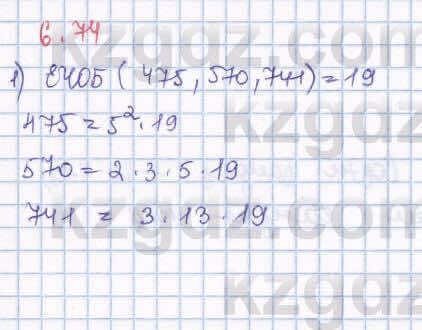 6.74
1) ЕҮОБ ( 475, 570, 741) = 19
475 = 5². 19
570 = 2 . 3 . 5 . 19
741 = 3 . 13 . 19
kzgdz.com
kzgdz.com
kzgdz.com
kzgdz.com